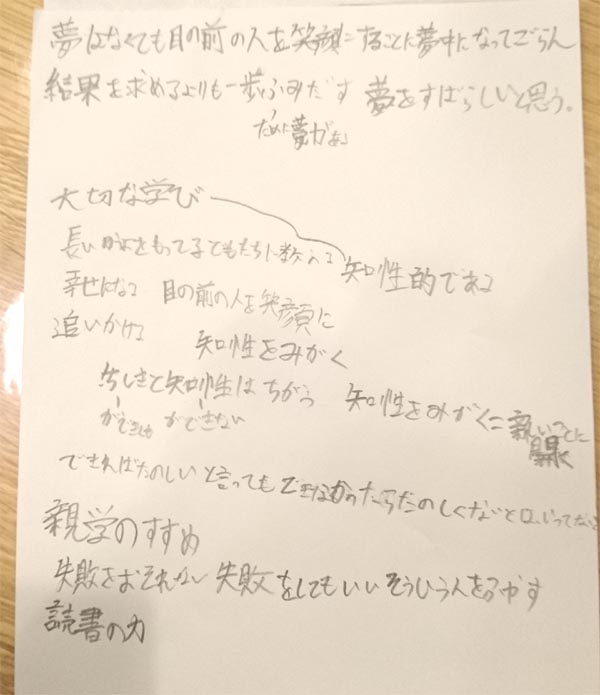 夢はなくても目の前の人を笑顔にすることに夢中になってごらん
結果を求めるよりも一歩ふみだす 夢をすばらしいと思う。
ために夢がある
大切な学び
長い をもって子どもたちに教える 知性的である
幸せになる 目の前の人を笑顔に
追いかける 知性をみがく
ちしきと知性はちがう 知性をみがく=新しいことに
ができない
できればたのしいと言ってもできなかったらたのしくないと
親学のすすめ
失敗をおそれない 失敗をしてもいいそういう人を
読書の力